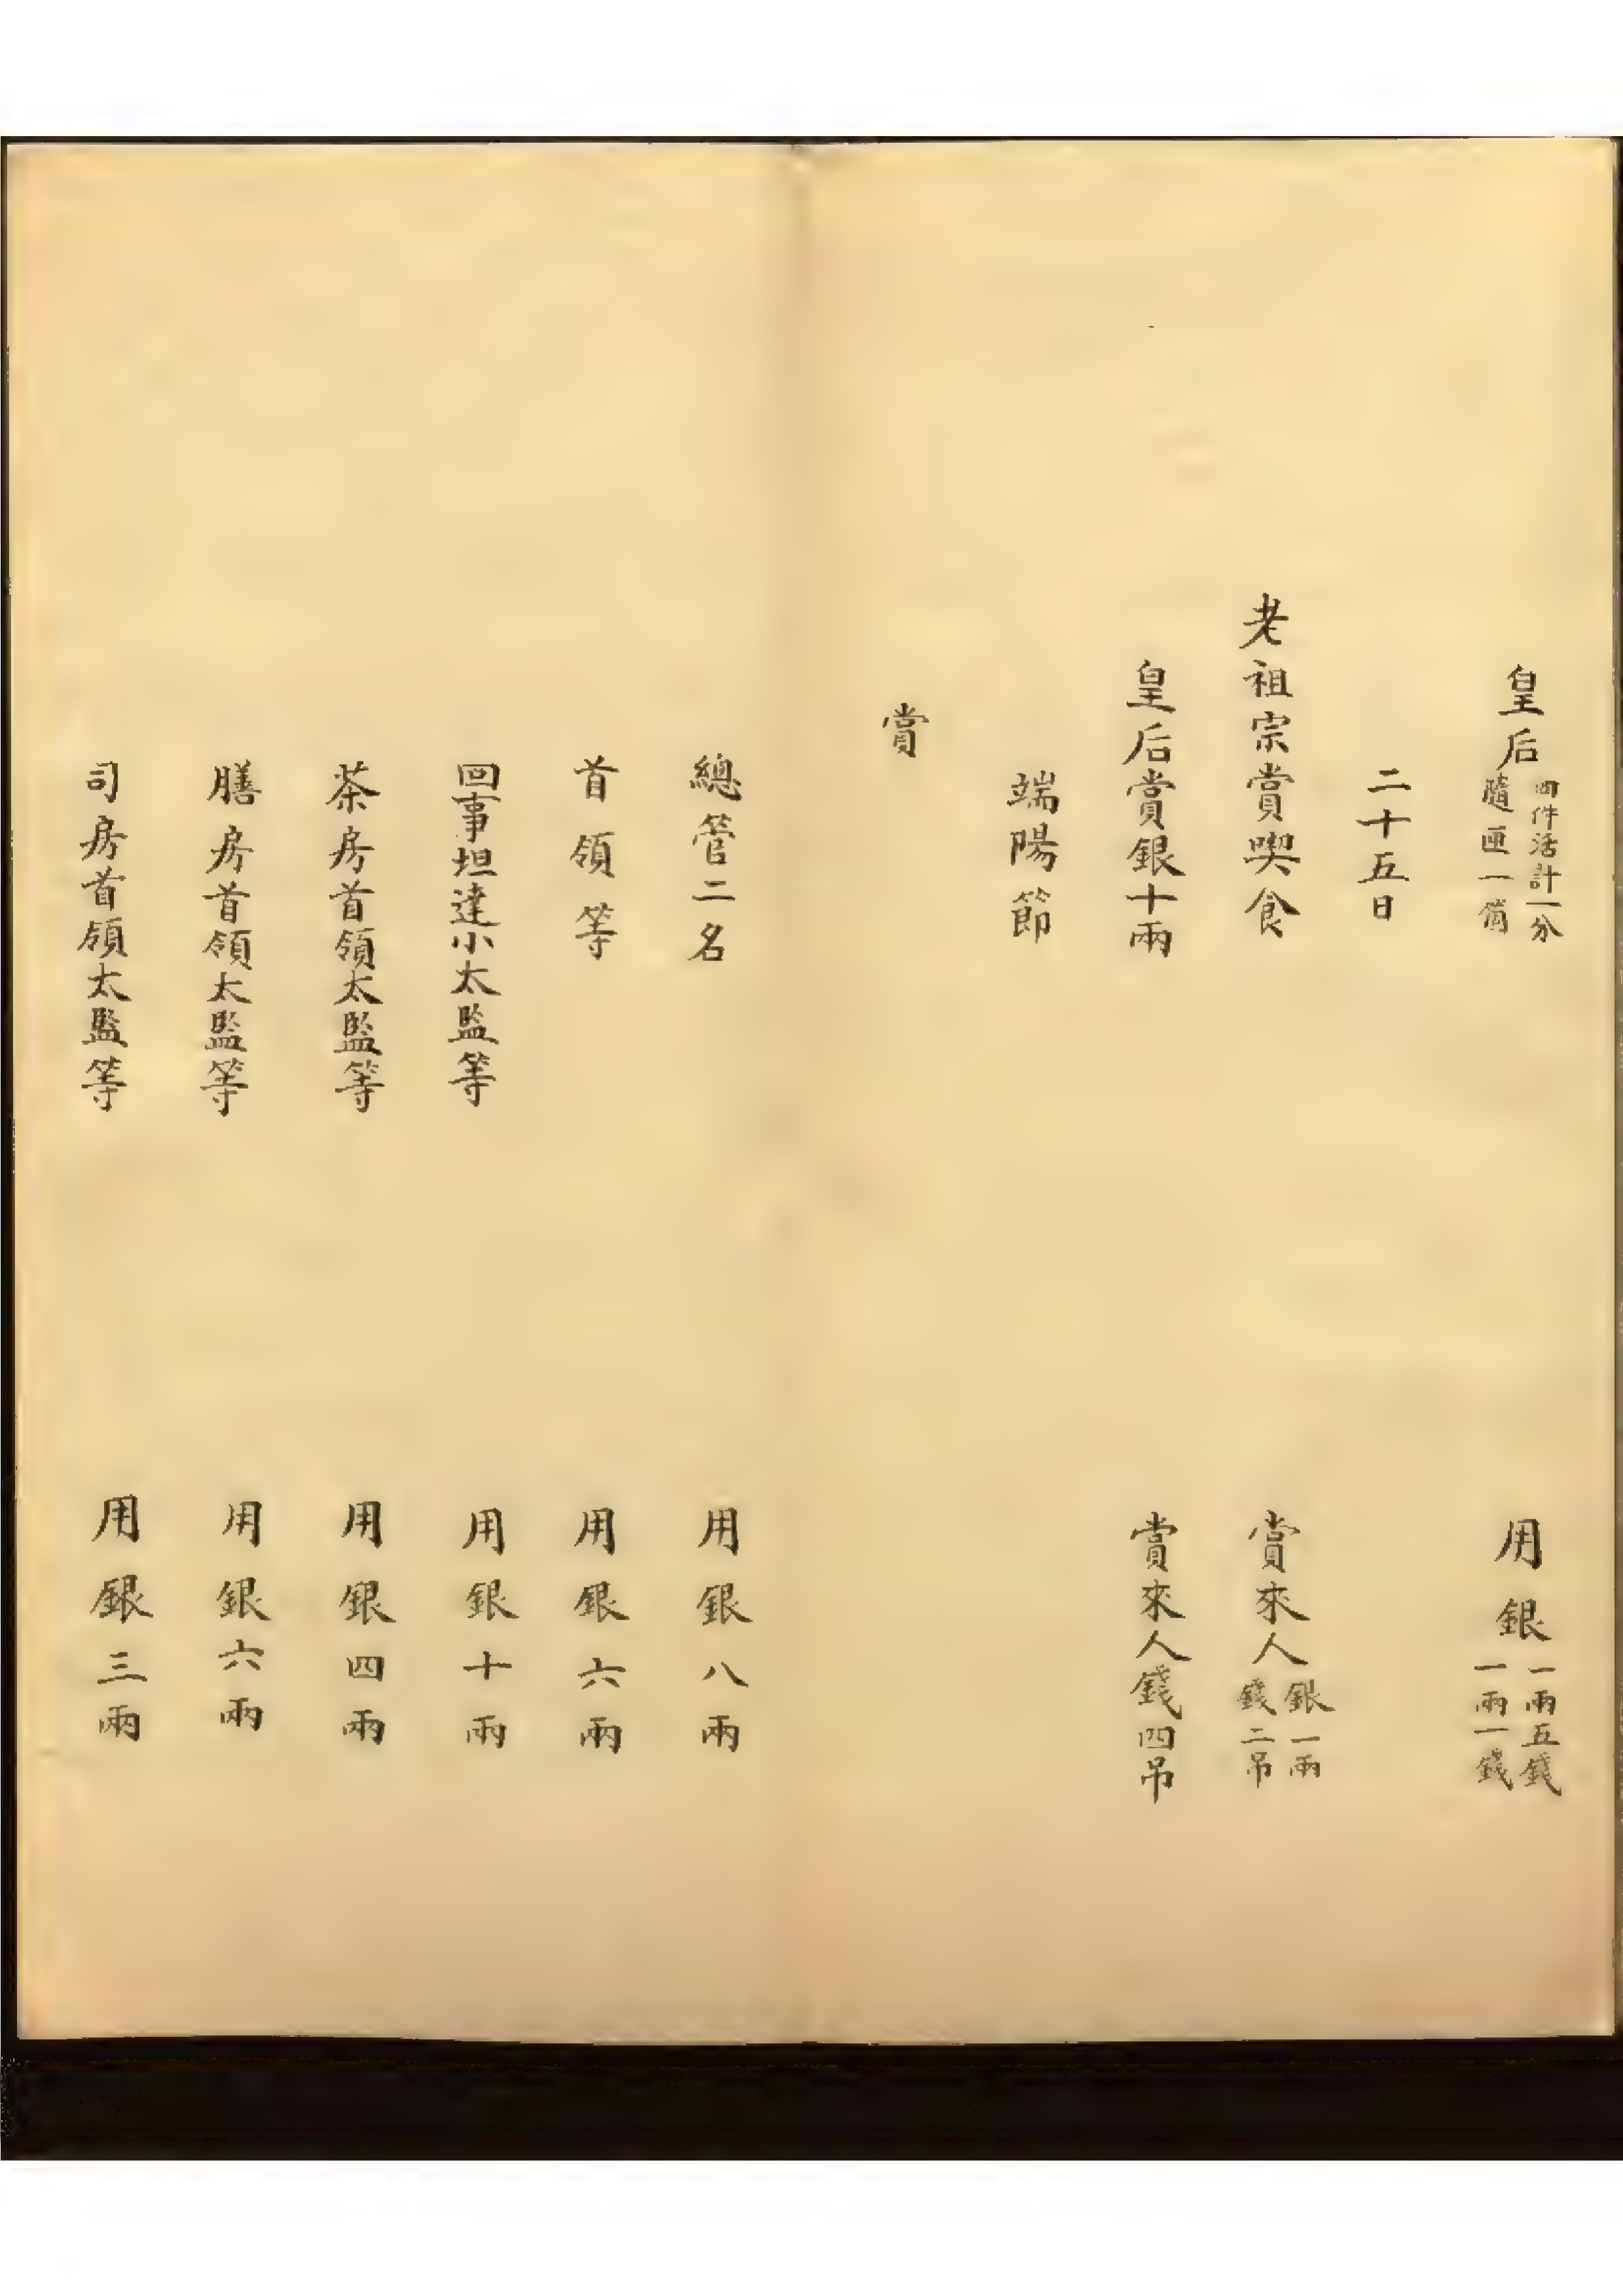 皇后四件活計一分隨匣一個　用銀一兩五錢一兩一錢
二十五日
老祖宗賞喫食　賞來人銀一兩錢二吊
皇后賞銀十兩　賞來人錢四吊
端陽節
賞
總管二名　用銀八兩
首領等　用銀六兩
回事坦達小太監等　用銀十兩
茶房首領太監等　用銀四兩
膳房首領太監等　用銀六兩
司房首領太監等　用銀三兩